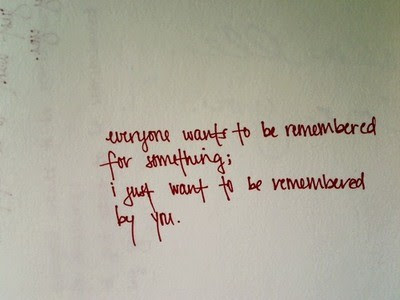 everyone wants to be remembered
for something;
i just want to be remembered
by you.